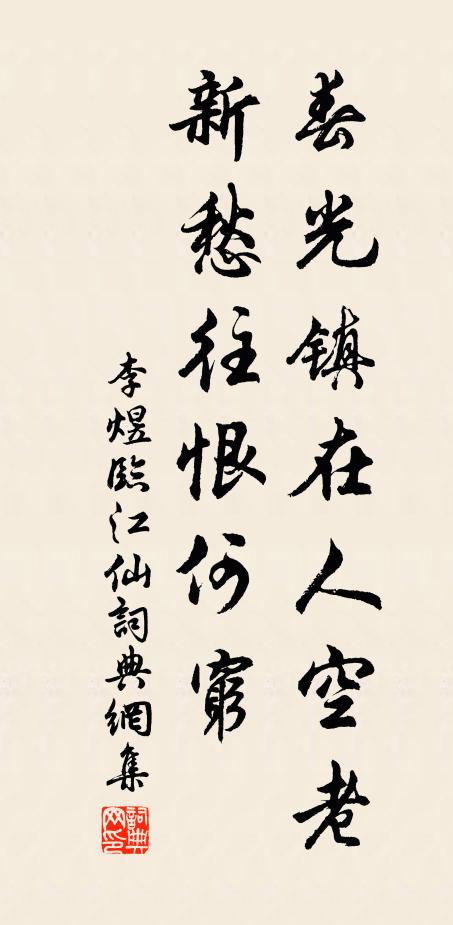 春光镇在人空老
新愁往恨何窮
李煜臨江仙詞典網集
詞典网印